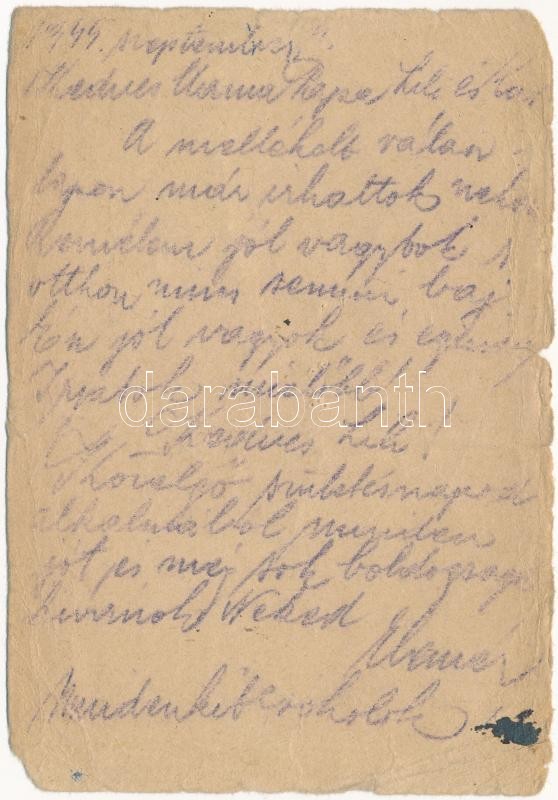 1944. szeptember
Kedves Mama Papa Lili és
A mellékelt válasz
lapon már irhattok nekem
Remélem jól vagytok s
otthon nincs semmi baj
Én jól vagyok és
Irjatok
darabanth
Kedves Lili!
Közelgő születésnapod
alkalmából minden
jót és még sok boldogságot
kivánok Neked
Mindenkit csókolok